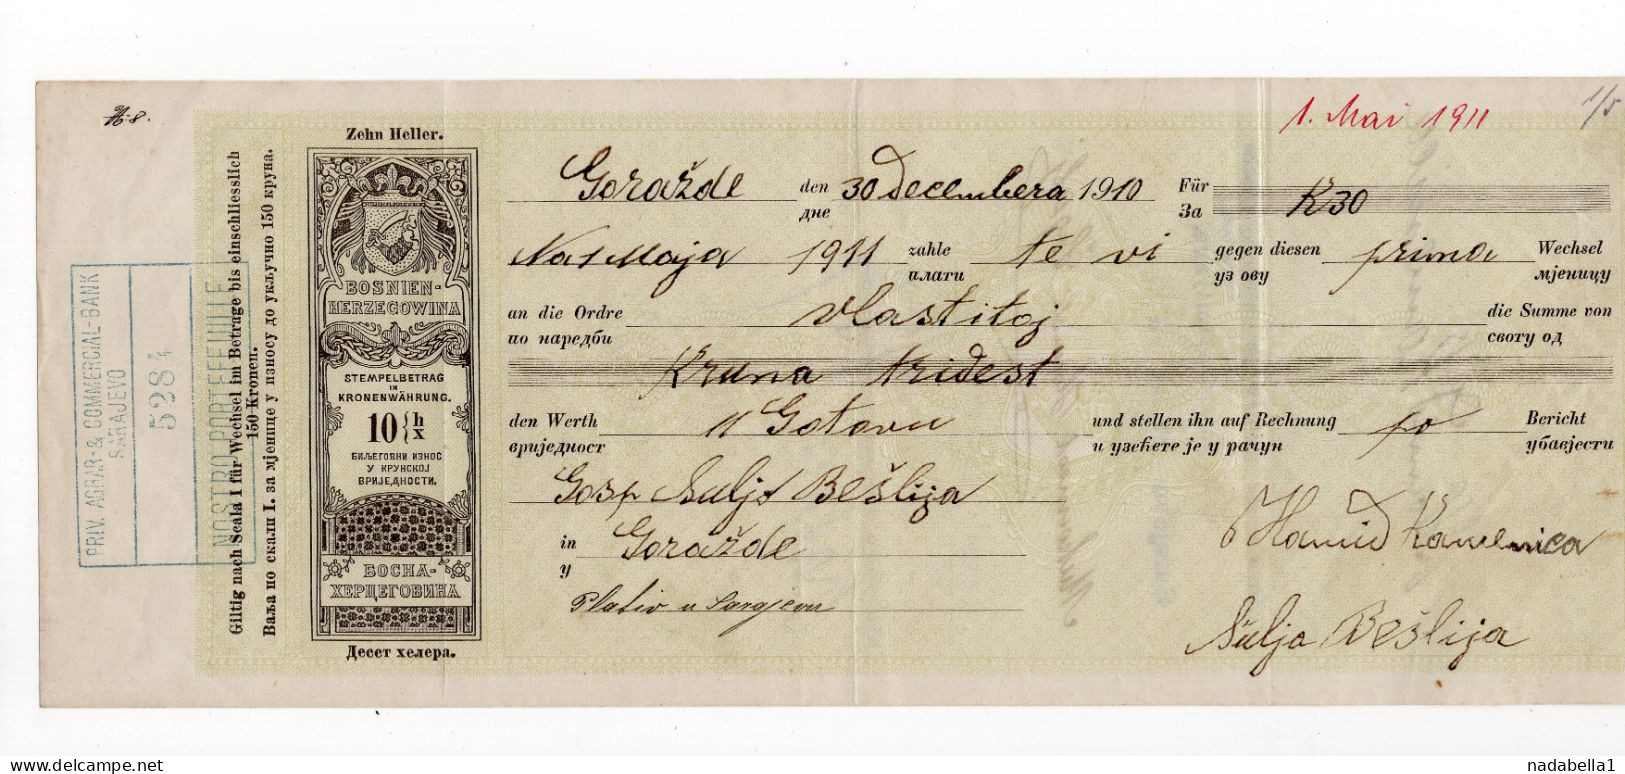 H-8.
1. Mai 1911
1/5
Zehn Heller.
Goražde den 30 Decembera 1910 Für K 30
дне За
Na 1 Maja 1911 zahle te vi gegen diesen prima Wechsel
плати уз ову мјеницу
an die Ordre vlastitoj die Summe von
по наредби своту од
Kruna trideset
den Werth u Gotovu und stellen ihn auf Rechnung po Bericht
вриједност и узећете је у рачун убавјести
Gosp Sulja Bešlija
in Goražde
у
Plativ u Sarajevu
Hamid Kamenica
Sulja Bešlija
BOSNIEN-
HERZEGOWINA
STEMPELBETRAG
IN
KRONENWÄHRUNG.
10 h
х
БИЉЕГОВНИ ИЗНОС
У КРУНСКОЈ
ВРИЈЕДНОСТИ.
БОСНА-
ХЕРЦЕГОВИНА
Десет хелера.
Giltig nach Scala I für Wechsel im Betrage bis einschliesslich
150 Kronen.
Ваља по скали I. за мјенице у износу до укључно 150 круна.
PRIV. AGRAR- & COMMERCIAL-BANK
SARAJEVO
5284
NOSTRO PORTEFEUILLE
delcampe.net
nadabella1